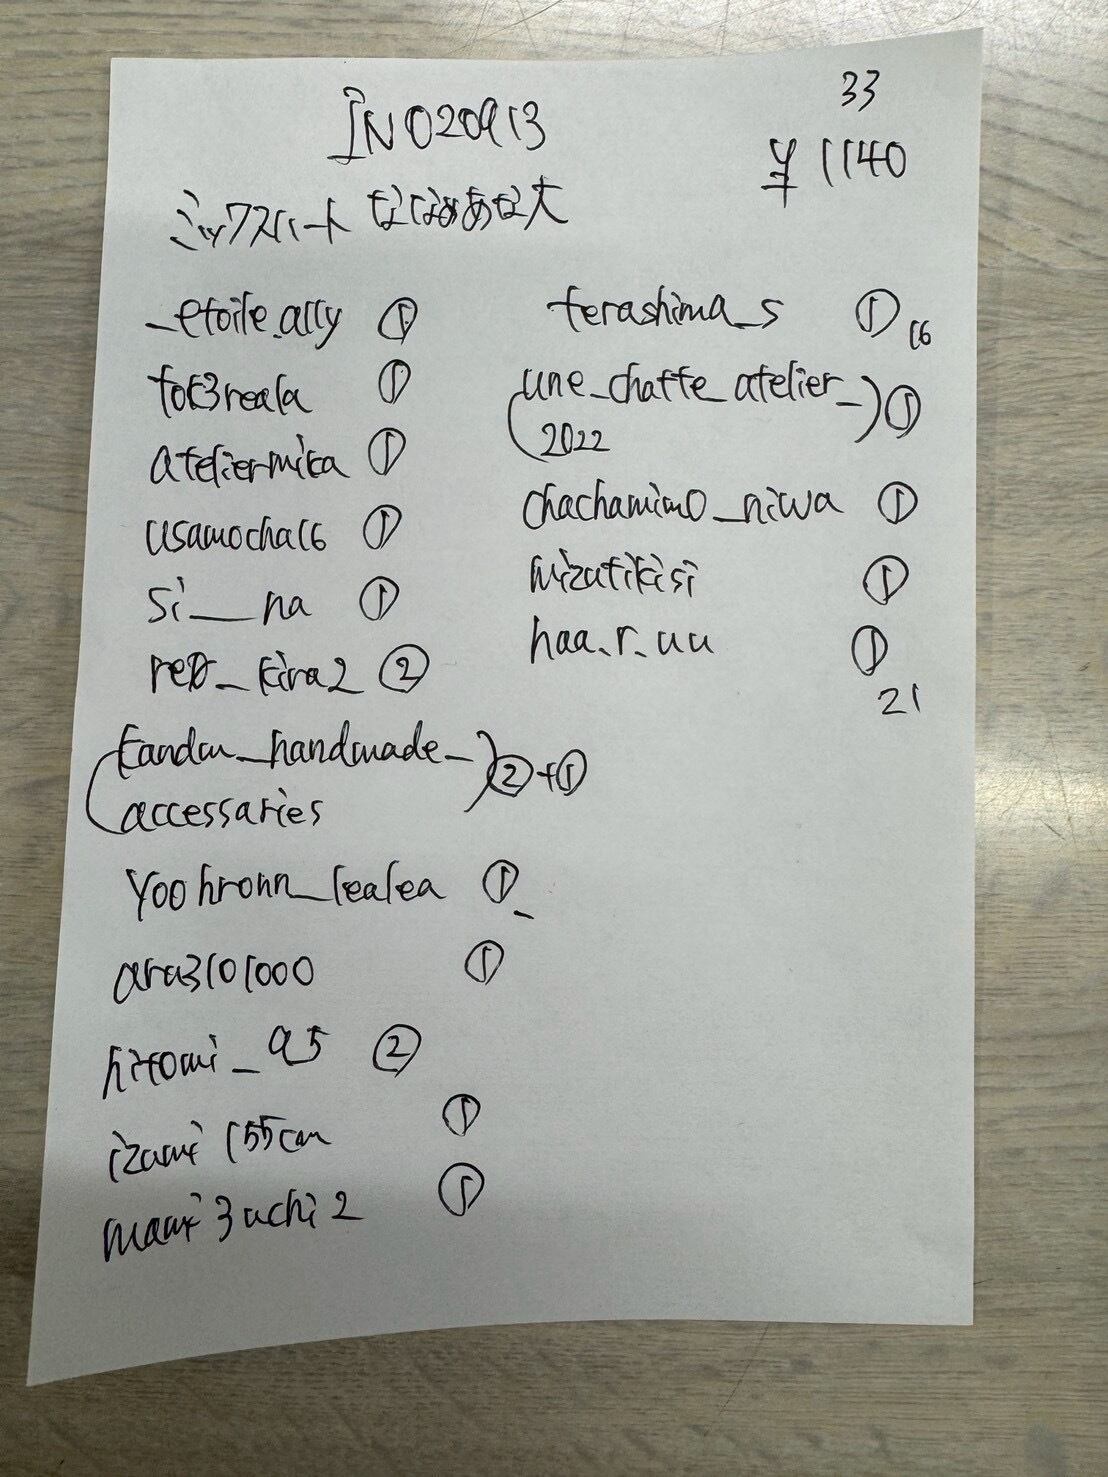 IN020913
33
¥1140
ミックスハート ななめあな大
_etoile.ally ①
tok3reala ①
ateliermika ①
usamocha16 ①
si__na ①
_kira2 ②
_handmade_ ②+①
accessaries
yoohronn_lealea ①
ara3101000 ①
hitomi_95 ②
izumi155cm ①
mami3uchi2 ①
terashima_s ①
16
(une_chatte_atelier_) ①
2022
chachamimo_niwa ①
mizutikisi ①
haa.r.uu ①
21